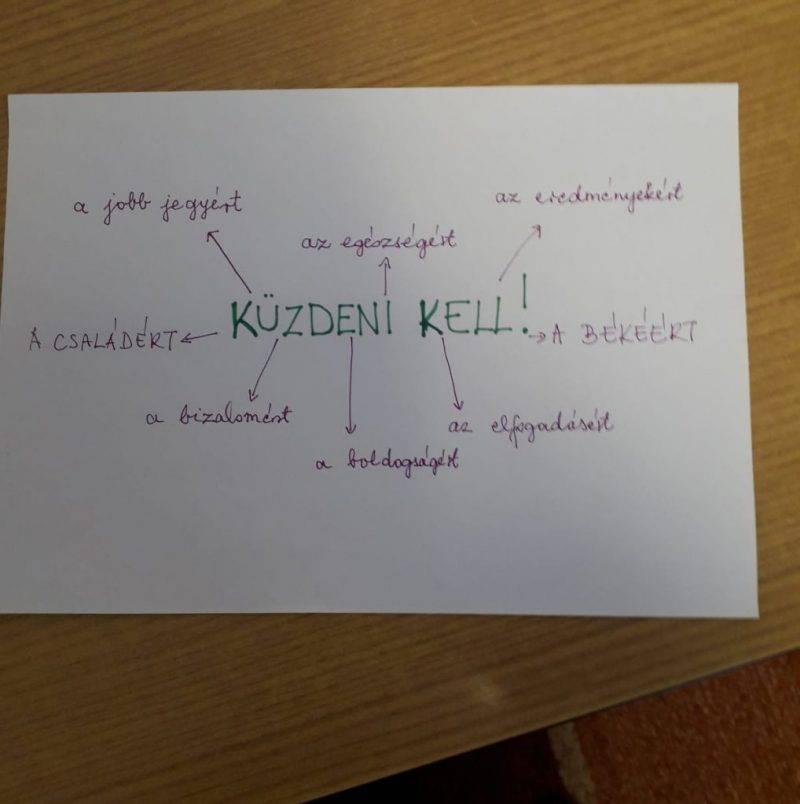 a jobb jegyért
az eredményekért
az egészségért
KÜZDENI KELL!
A CSALÁDÉRT
A BÉKÉÉRT
a bizalomért
az elfogadásért
a boldogságért